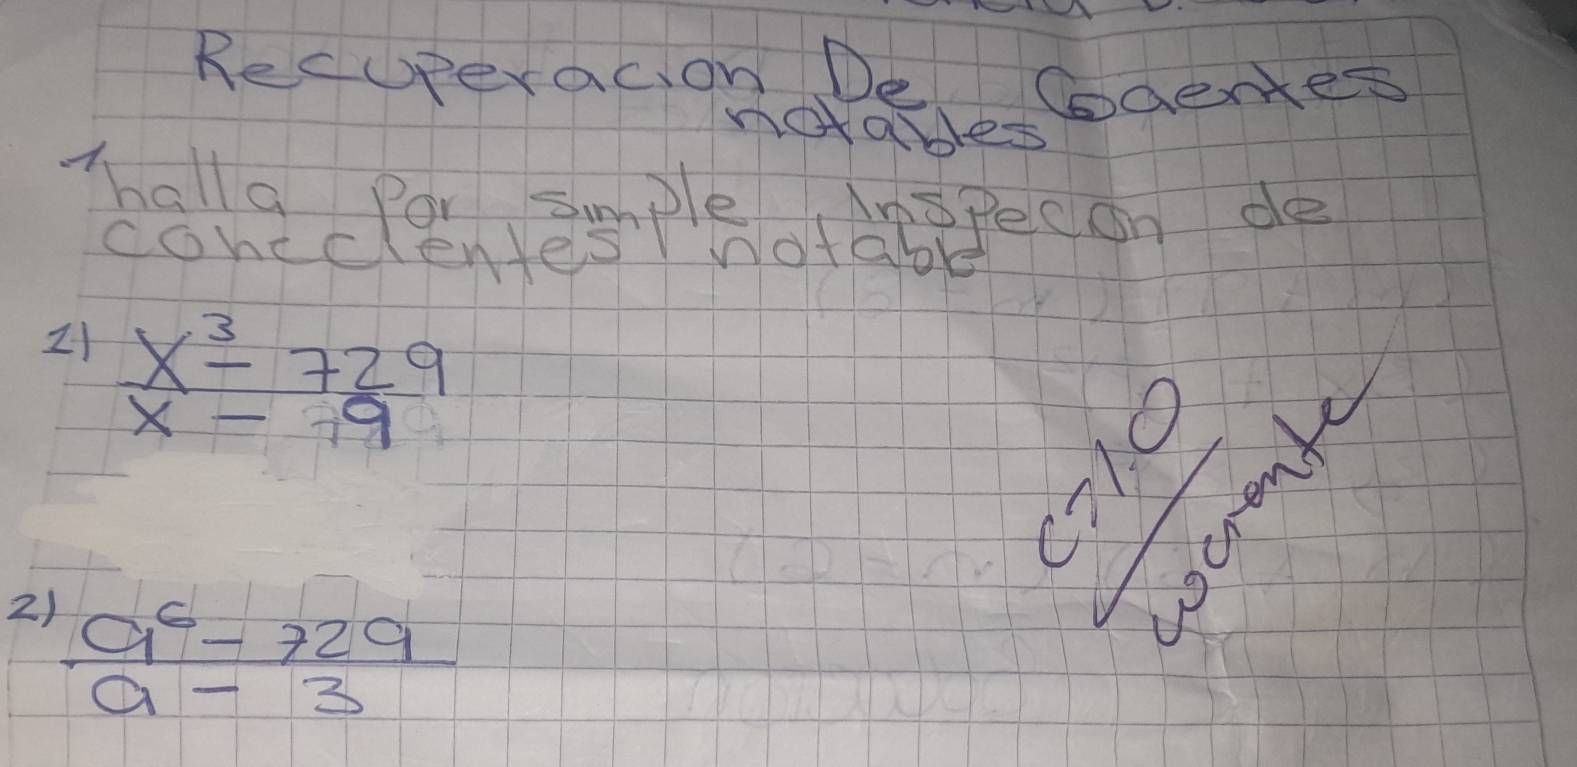 Recuperacion De Coaentes
notables
1 halla Por simple Inspecon de
conccientes notable
1) x³ - 729
x - 9
2) a⁶ - 729
a - 3